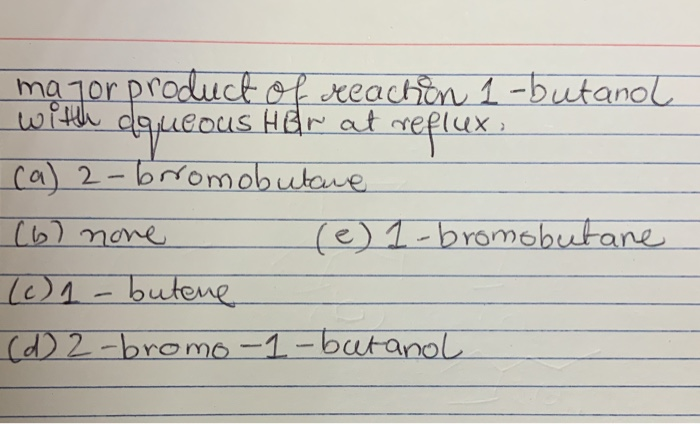 major product of reaction 1-butanol
with aqueous HBr at reflux.
(a) 2-bromobutane
(b) none (e) 1-bromobutane
(c) 1-butene
(d) 2-bromo-1-butanol